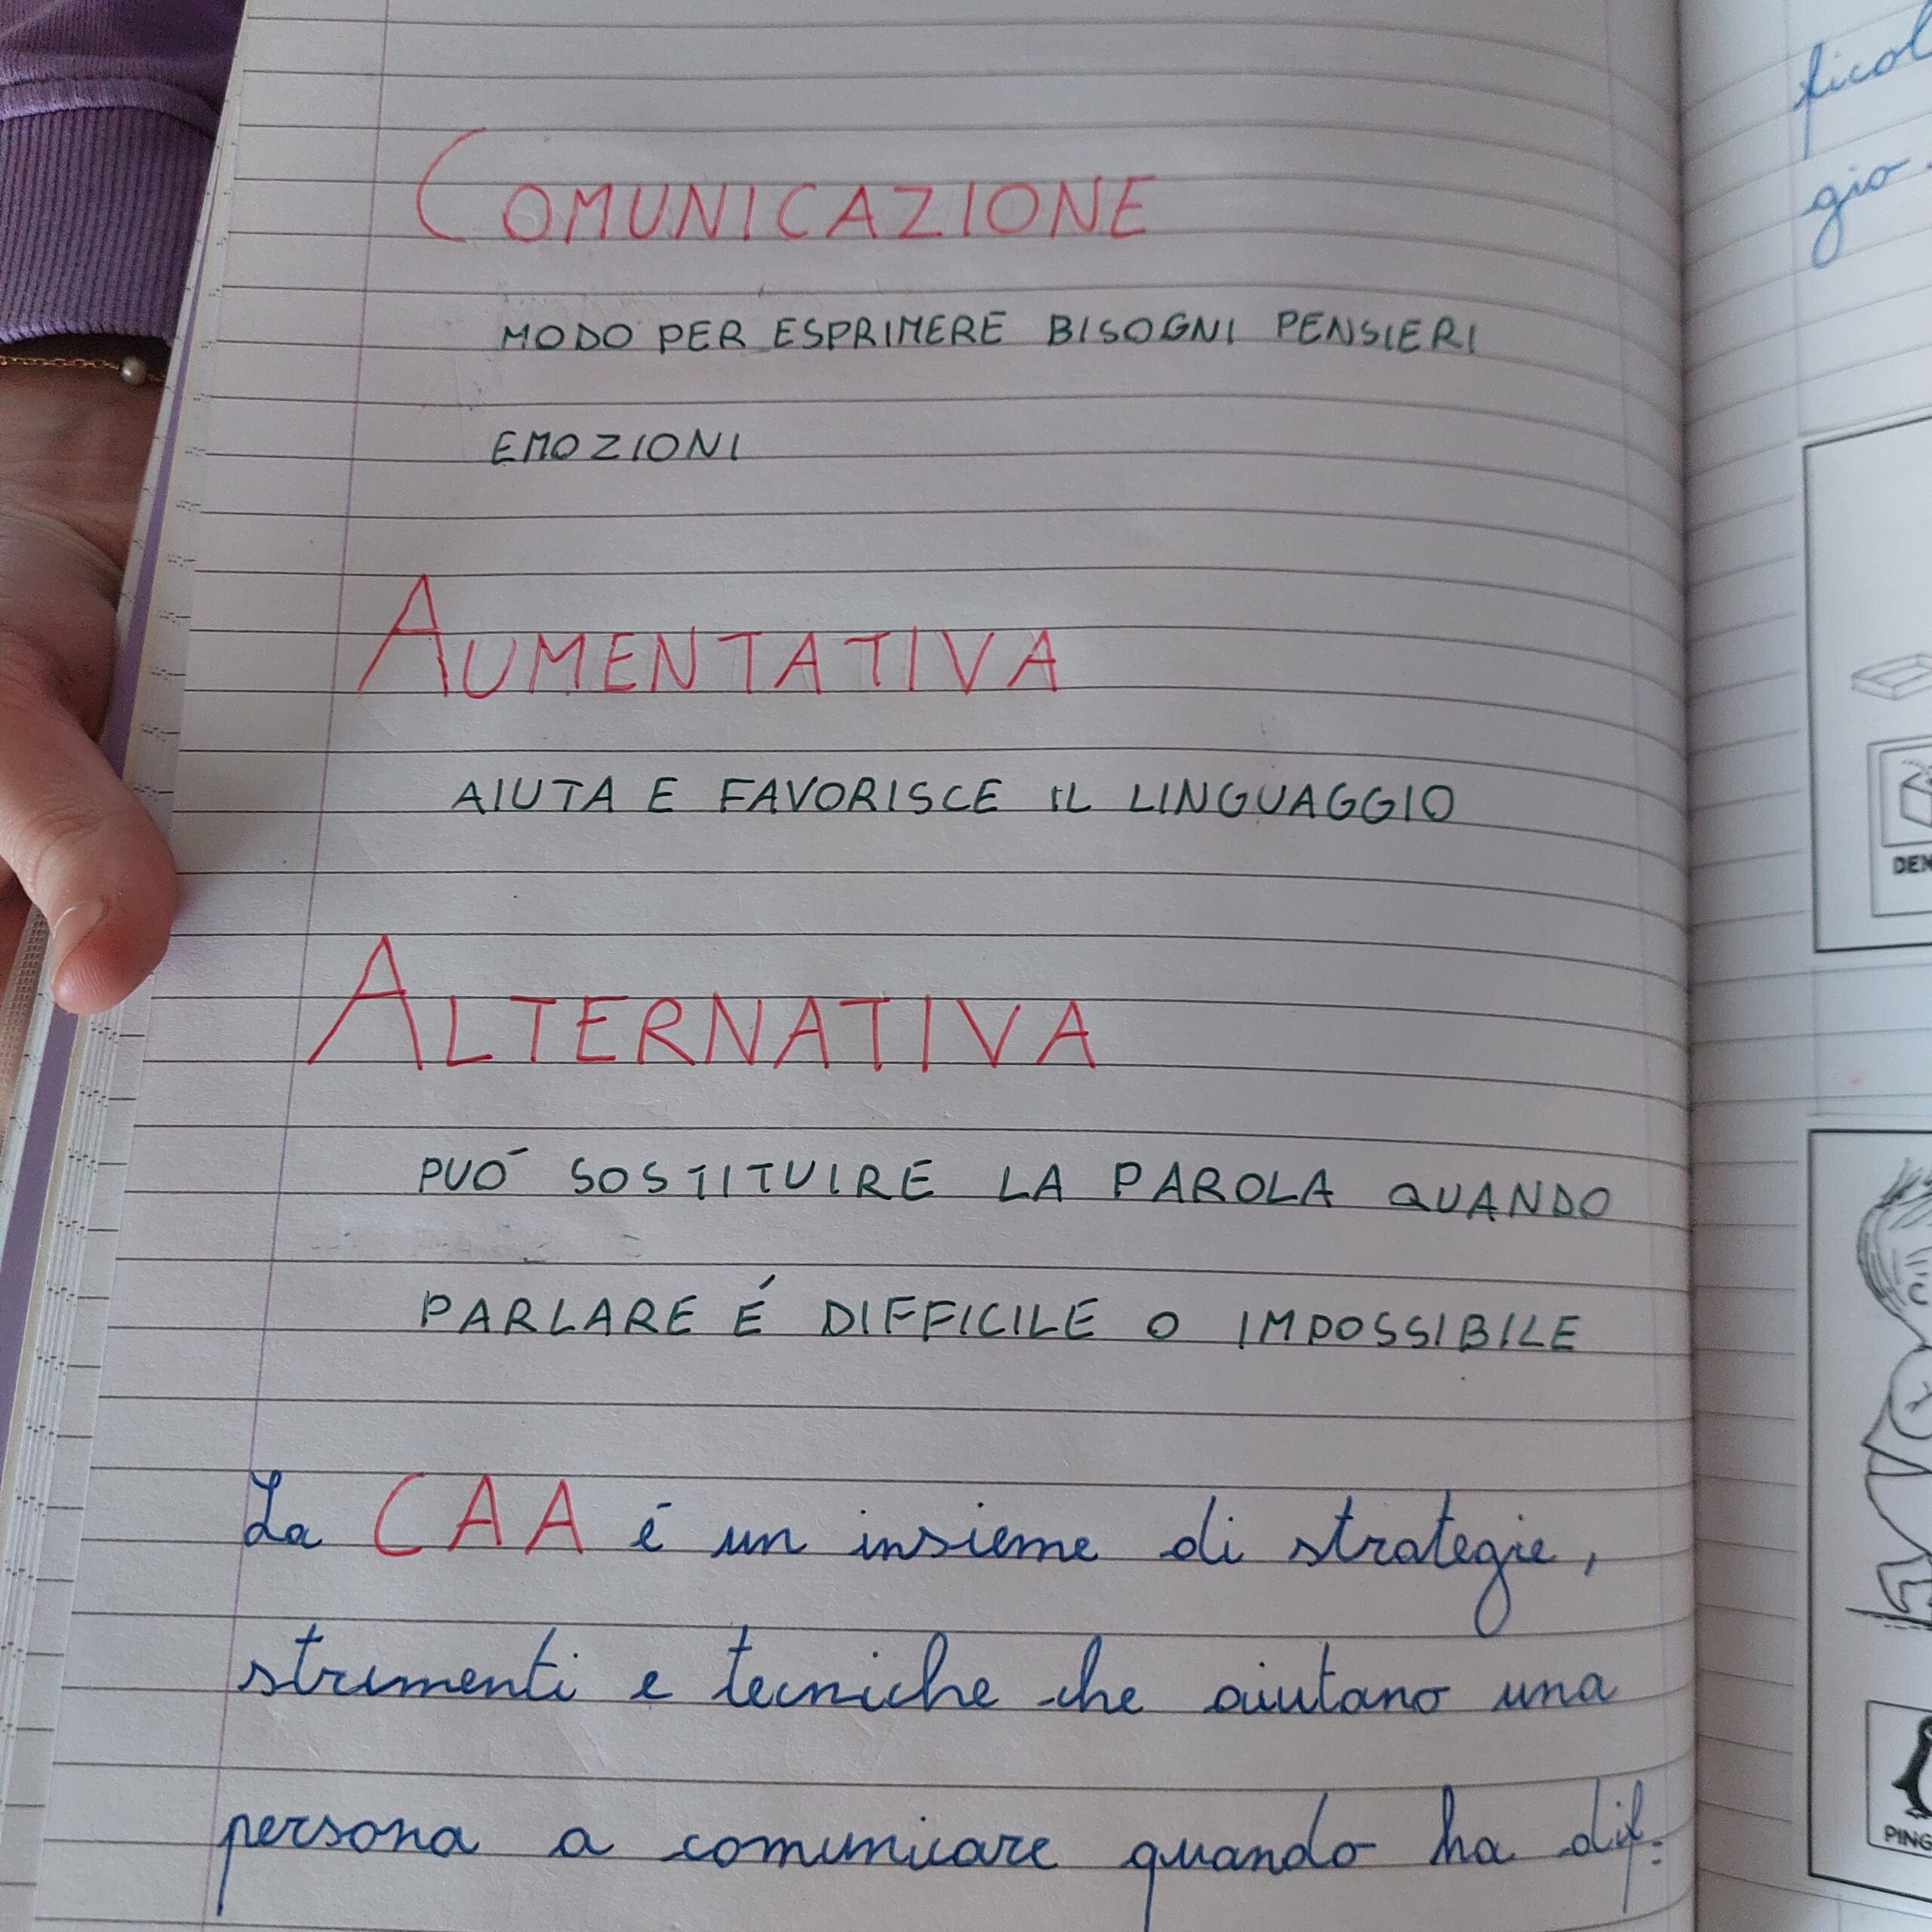 COMUNICAZIONE
MODO PER ESPRIMERE BISOGNI PENSIERI
EMOZIONI
AUMENTATIVA
AIUTA E FAVORISCE IL LINGUAGGIO
ALTERNATIVA
PUÓ SOSTITUIRE LA PAROLA QUANDO
PARLARE É DIFFICILE O IMPOSSIBILE
La CAA é un insieme di strategie,
strumenti e tecniche che aiutano una
persona a comunicare quando ha dif=
ficol
gio.
DEN
PING